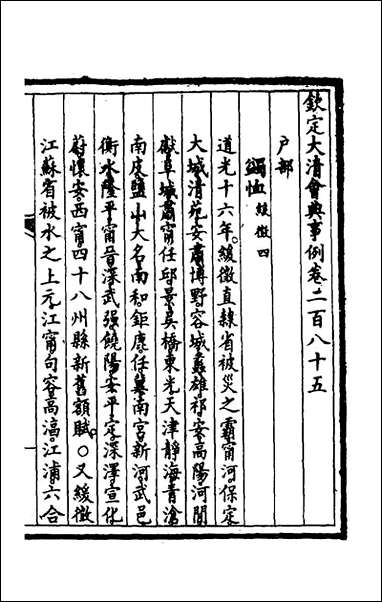 欽定大清會典事例卷二百八十五
戶部
蠲恤緩徵四
道光十六年緩徵直隸省被災之霸甯河保定
大城清苑安肅博野容城蠡雄祁安高陽河閒
獻阜城肅甯任邱景吳橋東光天津靜海青滄
南皮鹽山大名南和鉅鹿任冀南宮新河武邑
衡水隆平甯晉深武強饒陽安平定深澤宣化
蔚懷安西甯四十八州縣新舊額賦○又緩徵
江蘇省被水之上元江甯句容高淳江浦六合